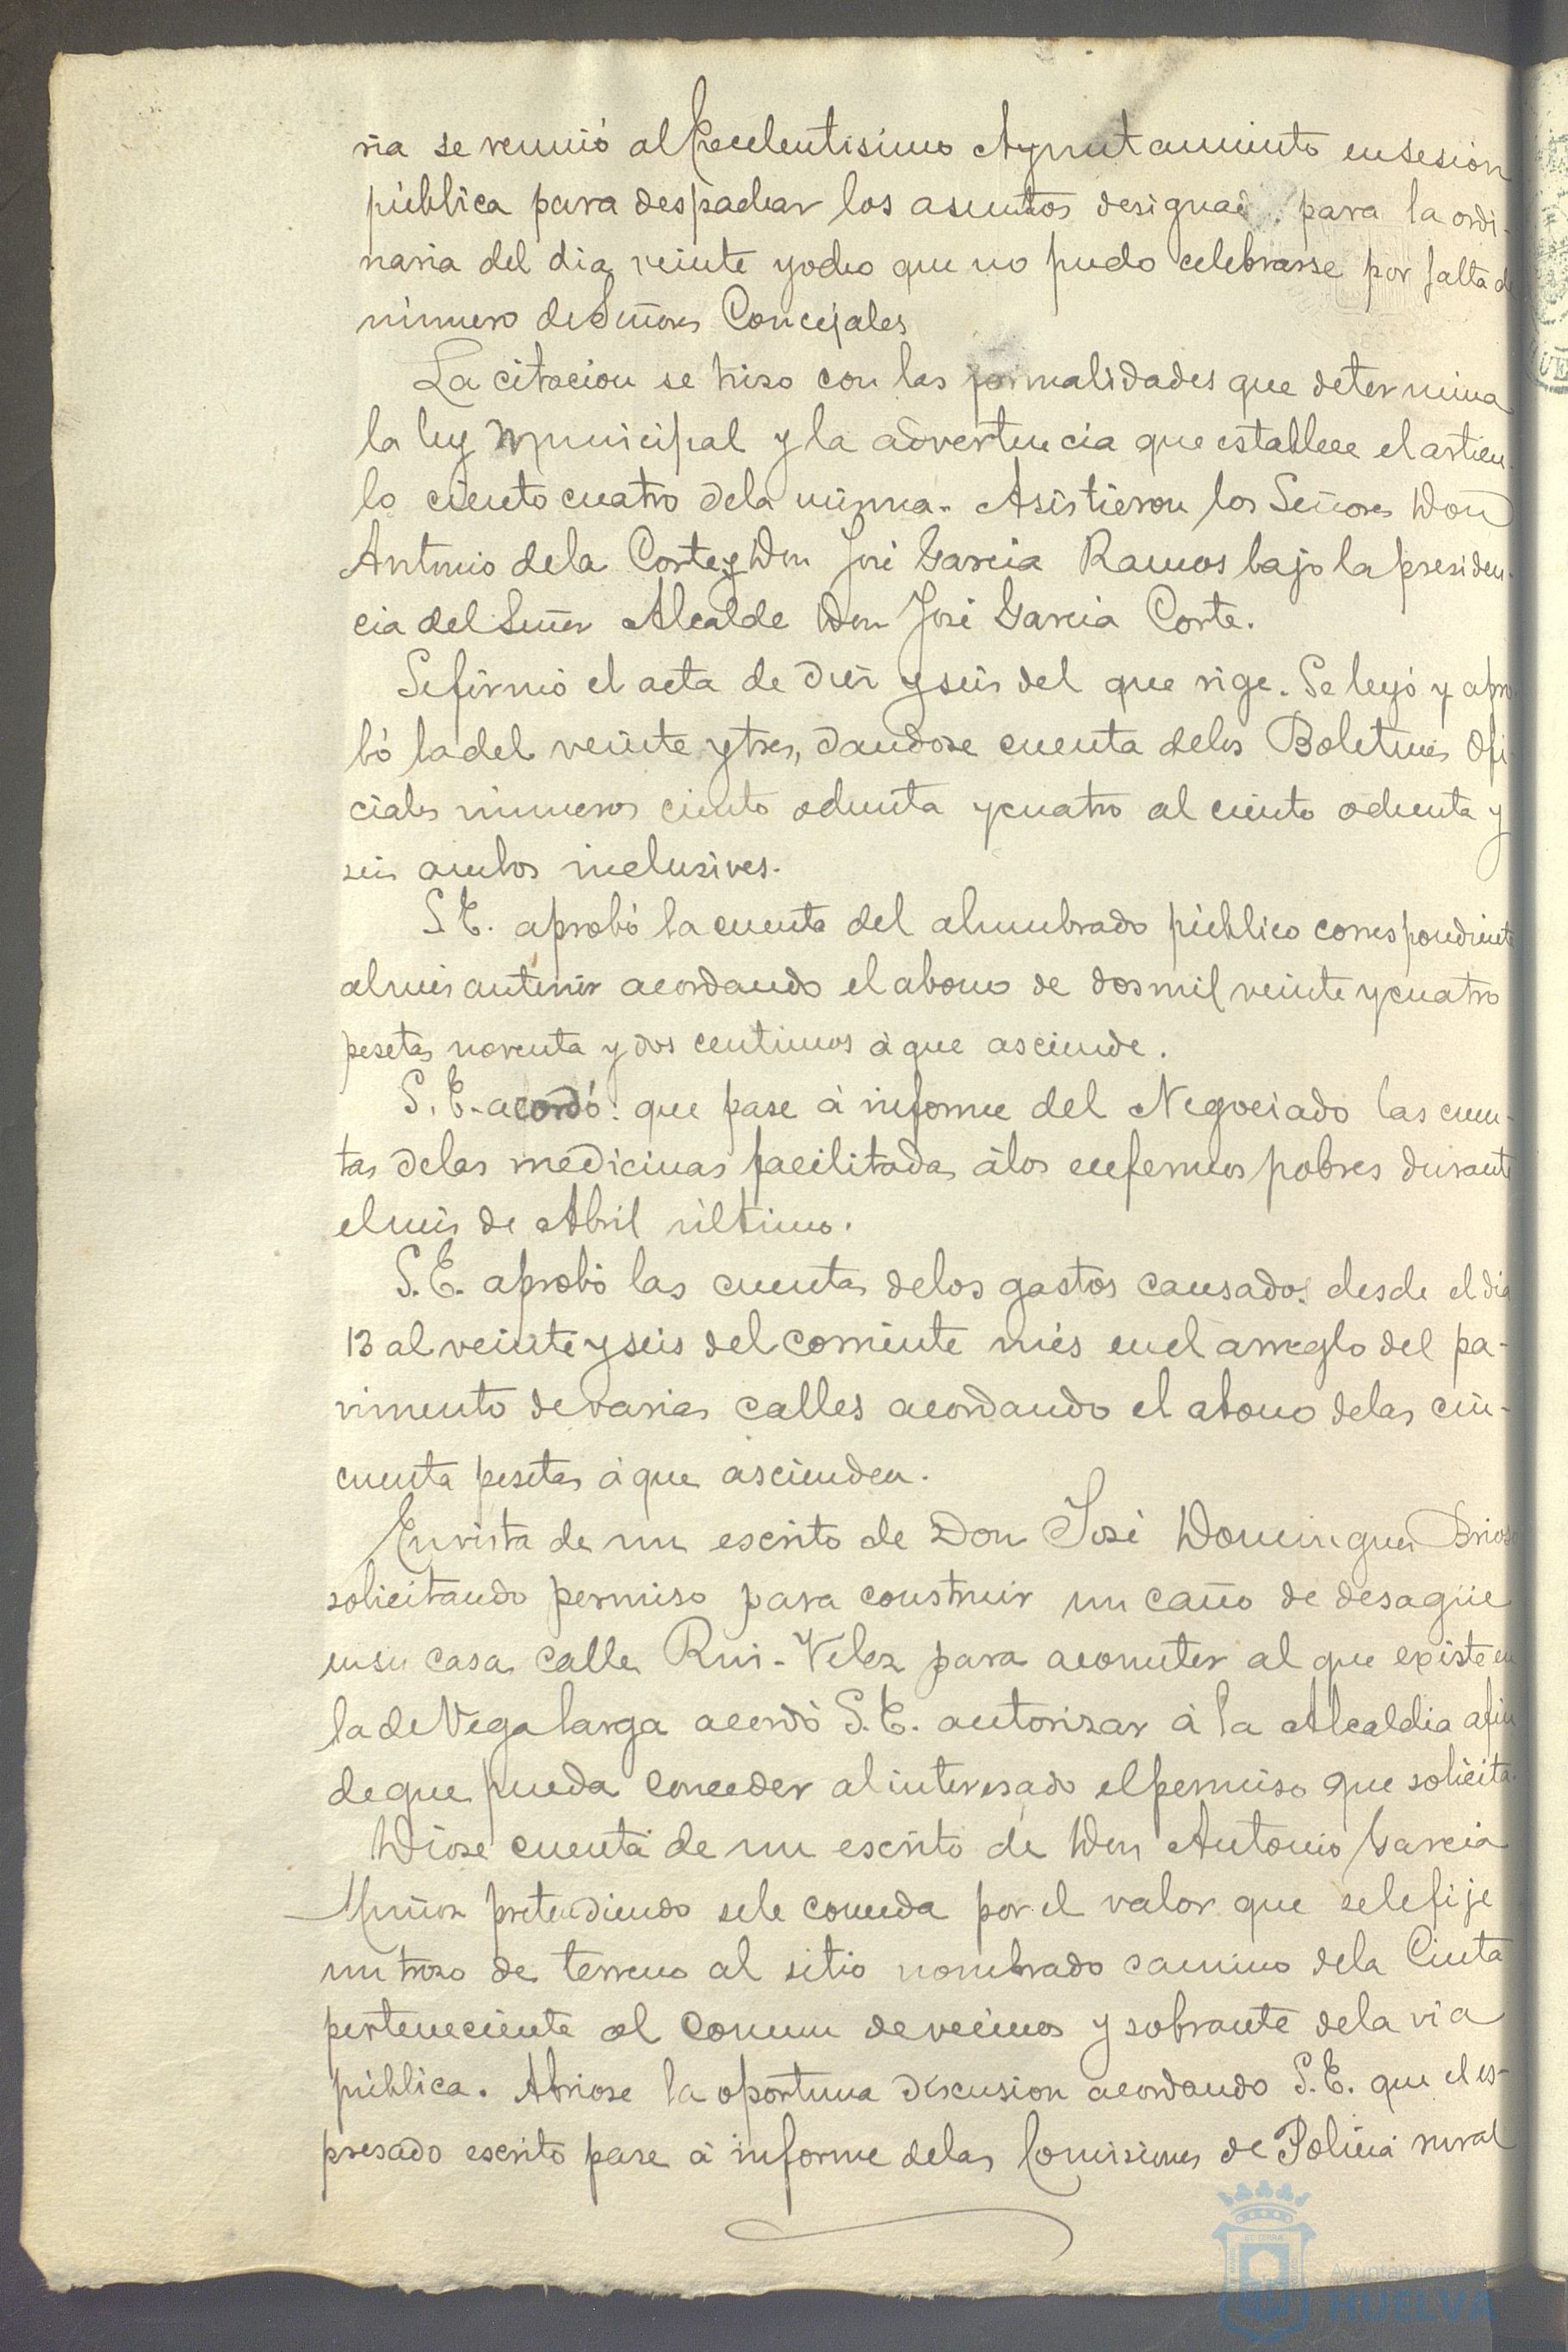 ria se reunió al Excelentisimo Ayuntamiento en sesion
pública para despachar los asuntos designad para la ordi-
naria del dia veinte y ocho que no pudo celebrarse por falta de
número de Señores Concejales
La citacion se hizo con las formalidades que determina
la ley municipal y la advertencia que establece el artícu-
lo ciento cuatro de la misma. Asistieron los Señores Don
Antonio de la Corte y Don José Garcia Ramos bajo la presiden-
cia del Señor Alcalde Don José Garcia Corte.
Se firmó el acta de diez y seis del que rige. Se leyó y apro
bó la del veinte y tres, dandose cuenta de los Boletines Ofi-
ciales números ciento ochenta y cuatro al ciento ochenta y
seis ambos inclusives.
S. E. aprobó la cuenta del alumbrado público correspondiente
al mes anterior acordando el abono de dos mil veinte y cuatro
pesetas noventa y dos centimos á que asciende.
S. E. acordó: que pase á informe del Negociado las cuen-
tas de las medicinas facilitadas á los enfermos pobres durante
el mes de Abril último.
S. E. aprobó las cuentas de los gastos causados desde el dia
13 al veinte y seis del corriente mes en el arreglo del pa-
vimento de varias calles acordando el abono de las cin-
cuenta pesetas á que ascienden.
En vista de un escrito de Don José Dominguez Brioso
solicitando permiso para construir un caño de desagüe
en su casa calle Rui-Velez para acometer al que existe en
la de Vega larga acordó S. E. autorizar á la Alcaldia a fin
de que pueda conceder al interesado el permiso que solicita.
Diose cuenta de un escrito de Don Antonio Garcia
Muñoz pretendiendo se le conceda por el valor que se le fije
un trozo de terreno al sitio nombrado camino de la Cinta
perteneciente al comun de vecinos y sobrante de la via
pública. Abriose la oportuna discusion acordando S. E. que el es-
presado escrito pase á informe de las Comisiones de Policia rural
Ayuntamiento
HUELVA